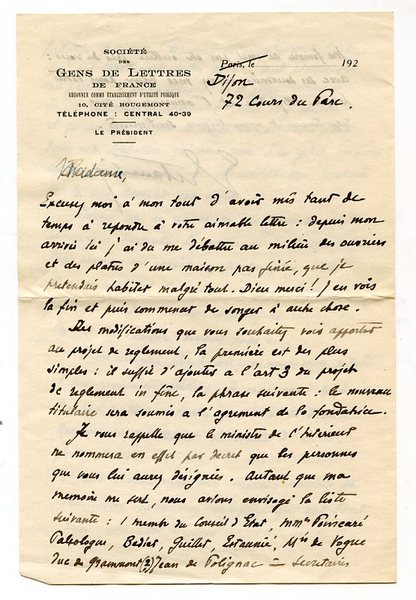 SOCIÉTÉ
DES
GENS DE LETTRES
DE FRANCE
RECONNUE COMME ÉTABLISSEMENT D'UTILITÉ PUBLIQUE
10, CITÉ ROUGEMONT
TÉLÉPHONE : CENTRAL 40-39
LE PRÉSIDENT
Paris, le 192
Dijon
72 Cours du Parc.
Madame,
Excusez moi à mon tout d'avoir mis tant de
temps à repondre à votre aimable lettre : depuis mon
arrivée ici j'ai du me débattre au milieu des ouvriers
et des platres d'une maison pas finie, que je
pretendais habiter malgré tout. Dieu merci ! j'en vois
la fin et puis commencer de songer à autre chose.
Des modifications que vous souhaitez voir apporter
au projet de reglement, la première est des plus
simples : il suffit d'ajouter a l'art 3 du projet
de reglement in fine, la phrase suivante : le nouveau
titulaire sera soumis a l'agrement de la fondatrice.
Je vous rappelle que le ministre de l'Interieur
ne nommera en effet par decret que les personnes
que vous lui aurez désignées. Autant que ma
memoire me sert, nous avions envisagé la liste
suivante : 1 membre du Conseil d'Etat, mmrs Poincarré
Paleologue, Bedier, Guillet, Estaunié, Mis de Vogue
duc de Grammont (2) Jean de Polignac – Secretaires